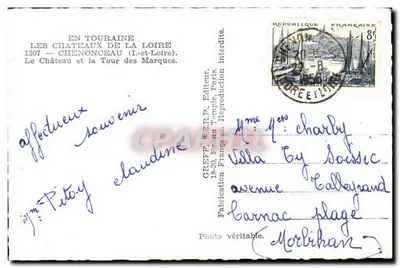 EN TOURAINE
LES CHATEAUX DE LA LOIRE
1307 — CHENONCEAU (I.-et-Loire).
Le Château et la Tour des Marques.
affectueux
souvenir
claudine
Mme Pitoy
GREFF, S.E.R.P., Editeur,
18-20, Fg. du Temple, Paris.
Fabrication Française. Reproduction interdite.
Photo véritable.
REPUBLIQUE FRANÇAISE
8F
CHINON
INDRE ET LOIRE
Mme Mers charby
Villa Ty Soissic
avenue Talleyrand
Carnac plage
(Morbihan)